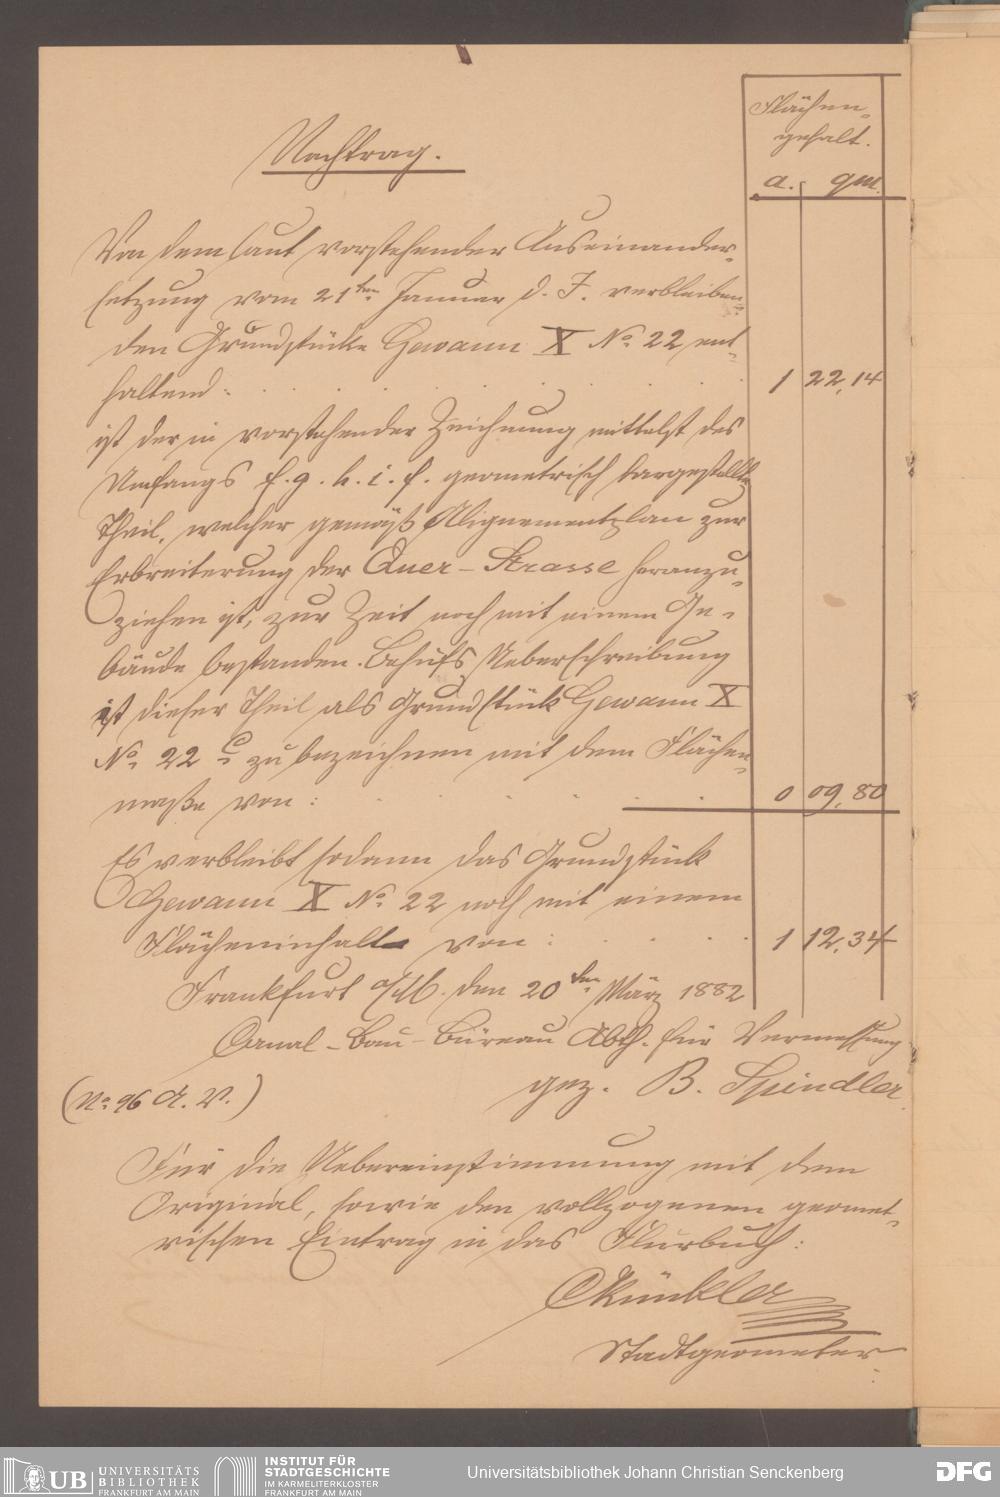 Flächen-
gehalt.
a. qm.
Nachtrag.
Von dem laut vorstehender Auseinander-
setzung vom 21ten Januar d. J. verbleiben-
den Grundstücke Gewann X No. 22 ent-
haltend: 1 22,14
ist der in vorstehender Zeichnung mittelst des
Umfangs f. g. h. i. f. geometrisch dargestellte
Theil, welcher gemäß Alignementsplan zur
Erbreiterung der Quer-Strasse heranzu-
ziehen ist, zur Zeit noch mit einem Ge-
bäude bestanden. Behufs Ueberschreibung
ist dieser Theil als Grundstück Gewann X
No. 22 c zu bezeichnen mit dem Flächen-
maße von: 0 09,80
Es verbleibt sodann das Grundstück
Gewann X No. 22 noch mit einem
Flächeninhalte von: 1 12,34
Frankfurt a/M. den 20ten März 1882
Canal-Bau-Büreau Abth. für Vermessung
gez. B. Spindler.
(No. 96 A. V.)
Für die Uebereinstimmung mit dem
Original, sowie den vollzogenen geomet-
rischen Eintrag in das Flurbuch:
Künkler
Stadtgeometer.
UB UNIVERSITÄTS
BIBLIOTHEK
FRANKFURT AM MAIN
INSTITUT FÜR
STADTGESCHICHTE
IM KARMELITERKLOSTER
FRANKFURT AM MAIN
Universitätsbibliothek Johann Christian Senckenberg
DFG